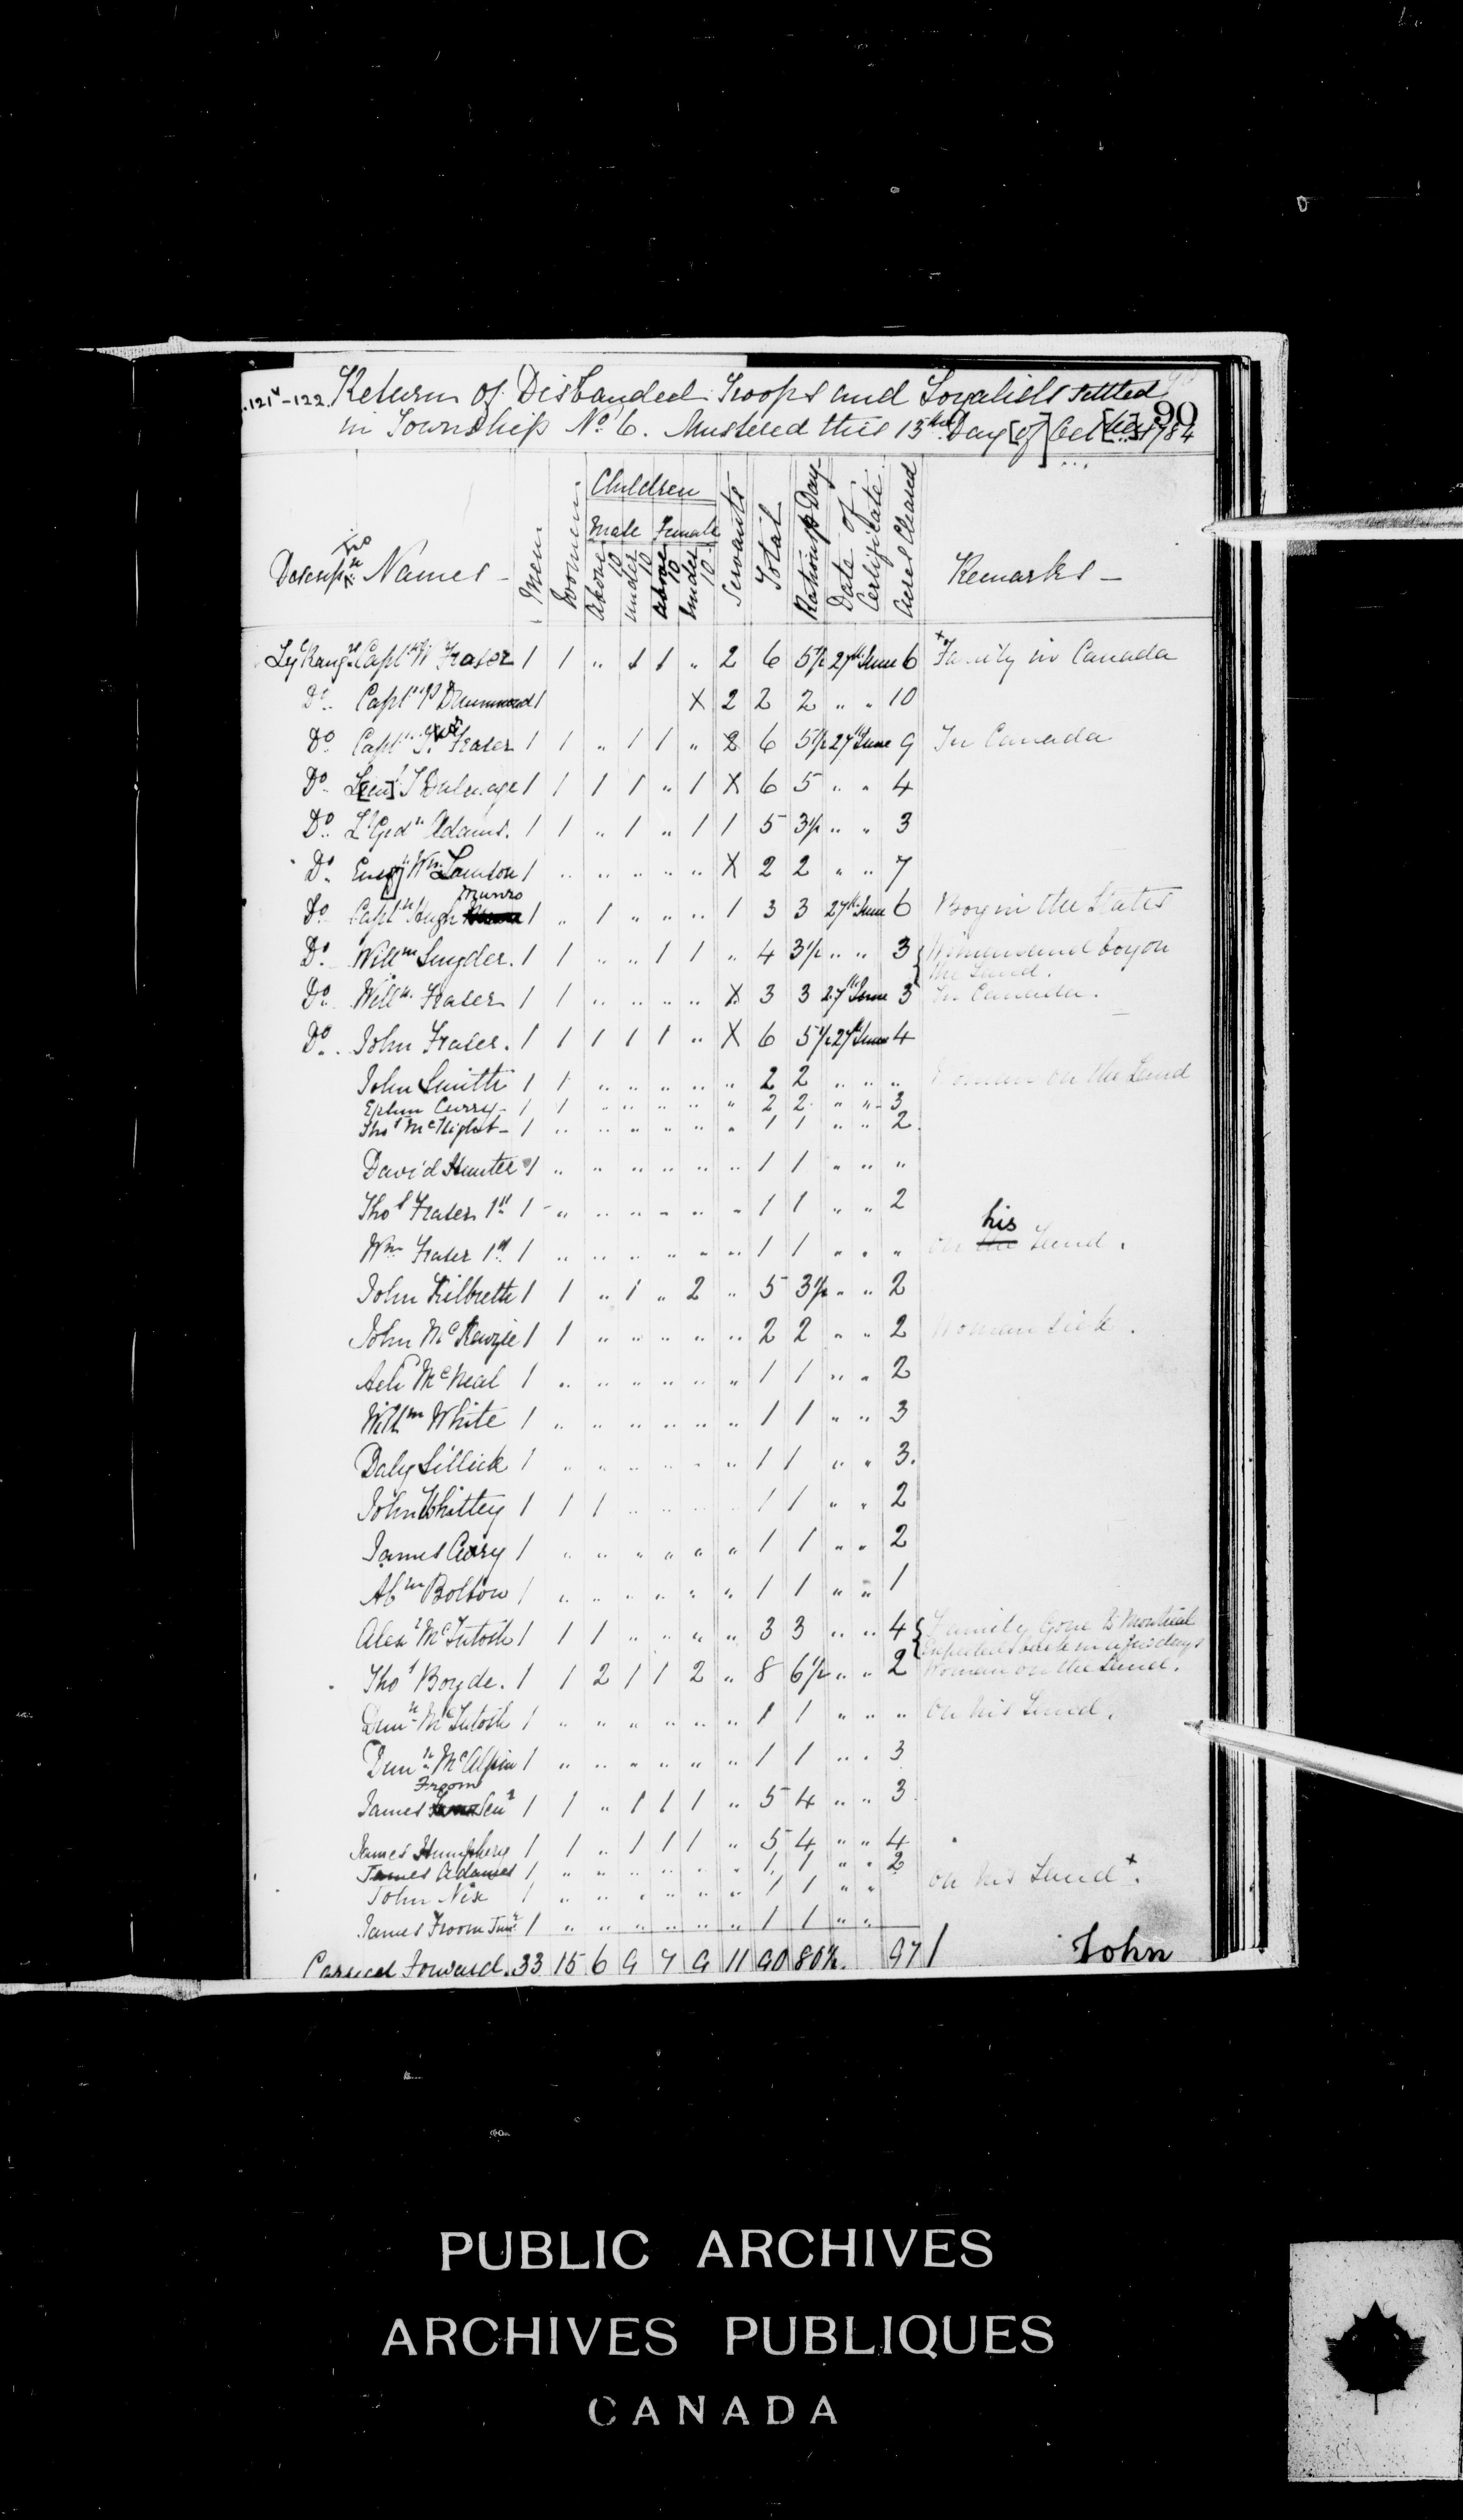 121v-122. Return of Disbanded Troops and Loyalists settled
in Township No. 6. Mustered this 13th Day [of] Oct[ber] 1784
90
Children
Male Female
Names - Men Women Above 10 under 10 above 10 under 10 Servants Total Rations p Day Date of Certificate Acres Cleard Remarks -
Capt. W Fraser 1 1 " 1 1 " 2 6 5½ 27th June 6 Family in Canada
Do. Capt. P Drummond 1 X 2 2 2 " " 10
Do. Capt. Fraser 1 1 " 1 1 " 2 6 5½ 27th June 9 In Canada
Do. 1 1 1 1 " 1 X 6 5 " " 4
Do. Lt Gedn Adams. 1 1 " 1 " 1 1 5 3½ " " 3
Do. Wm 1 " " " " " X 2 2 " " 7
Do. Captn Hugh Munro 1 " 1 " " " 1 3 3 27th June 6 Boy in the States
Do. Willm Snyder. 1 1 " " 1 1 " 4 3½ " " 3 Woman and boy on
the Land.
Do. Willm Fraser 1 1 " " " " X 3 3 27th June 3 In Canada.
Do. John Fraser. 1 1 1 1 1 " X 6 5½ 27th June 4
John Smith 1 1 " " " " " 2 2 " " " Woman on the Land
Ephm Curry - 1 1 " " " " " 2 2 " " 3
Thos McKight - 1 " " " " " " 1 1 " " 2
David Hunter 1 " " " " " " 1 1 " " "
Thos Fraser 1st 1 " " " " " " 1 1 " " 2
Wm Fraser 1st 1 " " " " " " 1 1 " " " on the his Land.
John Kilbreth 1 1 " 1 " 2 " 5 3½ " " 2
John McKenzie 1 1 " " " " " 2 2 " " 2 Woman Sick.
McNeal 1 " " " " " " 1 1 " " 2
Willm White 1 " " " " " " 1 1 " " 3
Daly Sillick 1 " " " " " " 1 1 " " 3.
John Whitley 1 1 1 " " " " 1 1 " " 2
James 1 " " " " " " 1 1 " " 2
Abm Bolton 1 " " " " " " 1 1 " " 1
Alexr McIntosh 1 1 1 " " " " 3 3 " " 4 Family Gone to Montreal
Expected back in a few days
Thos Boyde. 1 1 2 1 1 2 " 8 6½ " " 2 Woman on the Land.
Dunn McIntosh 1 " " " " " " 1 1 " " " on his Land.
Dunn McAlpin 1 " " " " " " 1 1 " " 3
James Froom Senr 1 1 " 1 1 1 " 5 4 " " 3
James Humphery 1 1 " 1 1 1 " 5 4 " " 4
James Adames 1 " " " " " " 1 1 " " 2
John Nix 1 " " " " " " 1 1 " " on his Land.
James Froom Junr 1 " " " " " " 1 1 " "
Carried Forward. 33 15 6 9 7 9 11 90 80½. 97
John
PUBLIC ARCHIVES
ARCHIVES PUBLIQUES
CANADA